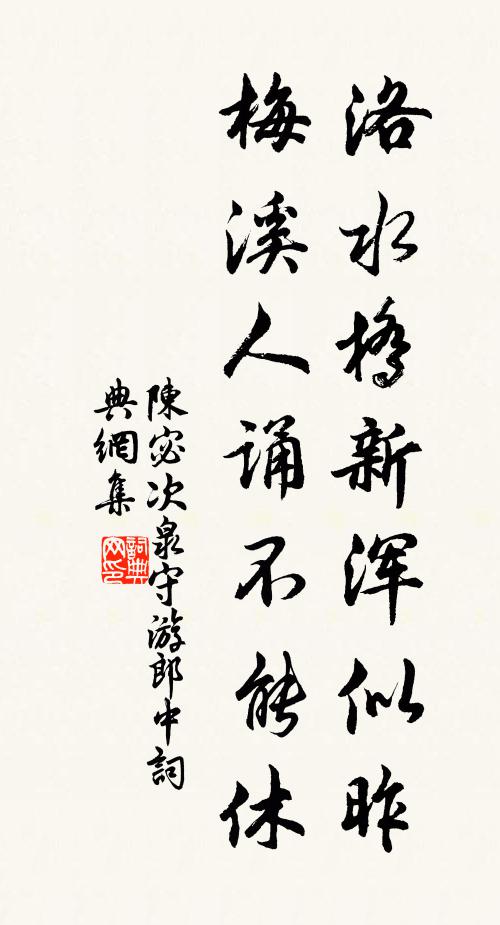 洛水橋新浑似昨
梅溪人誦不能休
陳宓次泉守游郎中詞
典網集
詞典
网印